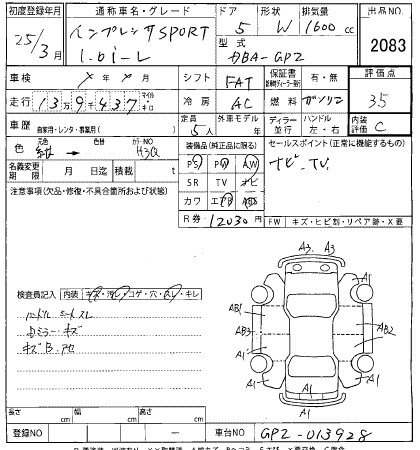 初度登録年月
通称車名・グレード
ドア
形状
排気量
出品NO.
25/3月
インプレッサSPORT
1.6i-L
5
W
1600 cc
2083
型式
DBA-GP2
車検
月
シフト
FAT
保証書
有・無
評価点
35
走行
13万9千437
マイル
キロ
冷房
AC
燃料
ガソリン
車歴
自家用・レンタ・事業用( )
定員
5人
外車モデル
年
ディーラー
並行
ハンドル
左・右
内装
評価
C
色
元色
紺
色替
カラーNO
H3Q
装備品(純正品に限る)
PS PW AW
SR TV ナビ
カワ エアB ABS
セールスポイント(正常に機能するもの)
ナビ、TV
名義変更
期限
月 日迄
積載
t
注意事項(欠品・修復・不具合箇所および状態)
R券
12030円
FW
キズ・ヒビ割・リペア跡・X要
A3 A3
A1
A1
AB1
AB3
AB2
A1
A1
A1
A1
検査員記入
内装
キズ・汚レ・コゲ・穴・スレ・キレ
ハンドル シート スレ
Dミラー キズ
キズB.凹
長さ
cm
幅
cm
高さ
cm
登録NO
―
車台NO
GP2-013928